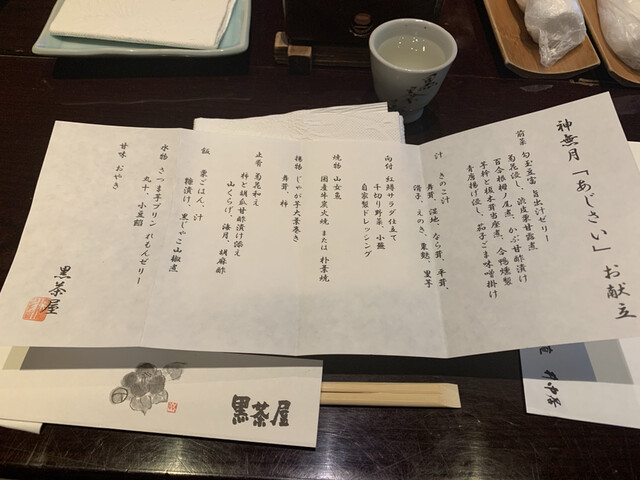 神無月「あじさい」お献立
前菜 勾玉豆富 旨出汁ゼリー
菊花浸し、渋皮栗甘露煮
百合根梅ノ尾煮、かぶ甘酢漬け
子衿と椎木茸当座煮、合鴨燻製
青唐揚げ浸し、茄子ごま味噌掛け
汁 きのこ汁
舞茸、湿地、なら茸、平茸、
滑子、えのき、粟麩、里芋
向付 紅鱒サラダ仕立て
千切り野菜、小蕪
自家製ドレッシング
焼物 山女魚
国産牛炭火焼 または 朴葉焼
揚物 じゃが芋大葉巻き
舞茸、柿
止肴 菊花和え
柿と胡瓜甘酢漬け添え
山くらげ、海月、胡麻酢
飯 栗ごはん、汁
糠漬け、黒じゃこ山椒煮
水物 さつま芋プリン れもんゼリー
丸十、小豆餡
甘味 おやき
黒茶屋
黒茶屋